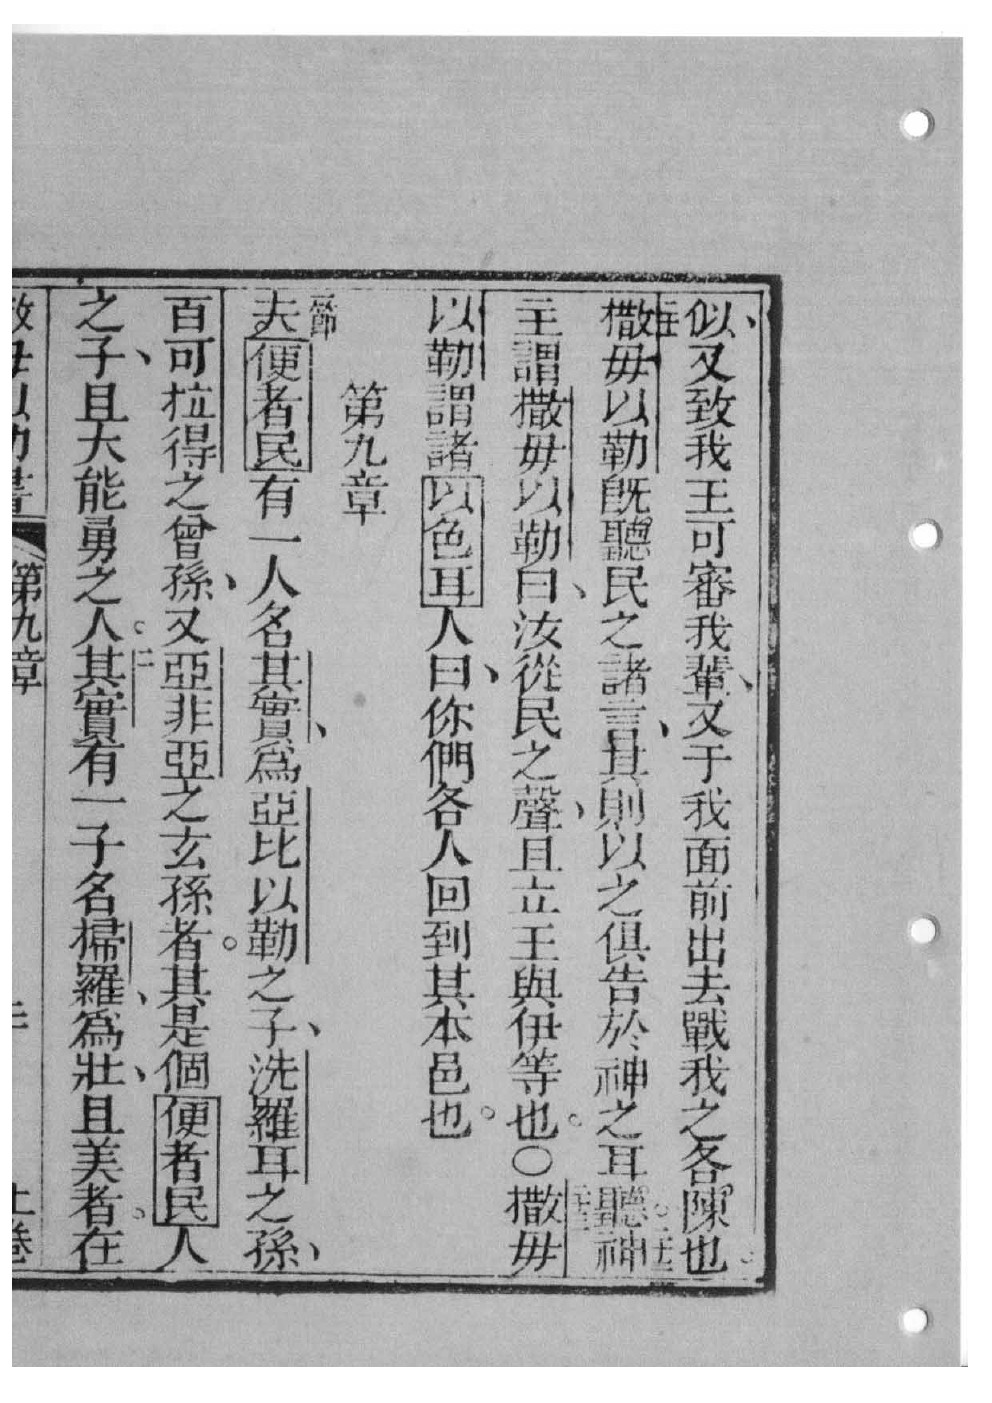 似、又致我王可審我輩、又于我面前出去戰我之各陳也。
撒毋以勒旣聽民之諸言、其則以之俱告於神之耳。聽神
主謂撒毋以勒曰、汝從民之聲、且立王與伊等也。〇撒毋
以勒謂諸以色耳人曰、你們各人回到其本邑也。
第九章
節
夫便者民有一人名其實、爲亞比以勒之子、洗羅耳之孫、
百可拉得之曾孫、又亞非亞之玄孫者。其是個便者民人
之子、且大能勇之人。二其實有一子名掃羅、爲壯、且美者。在
第九章
上卷